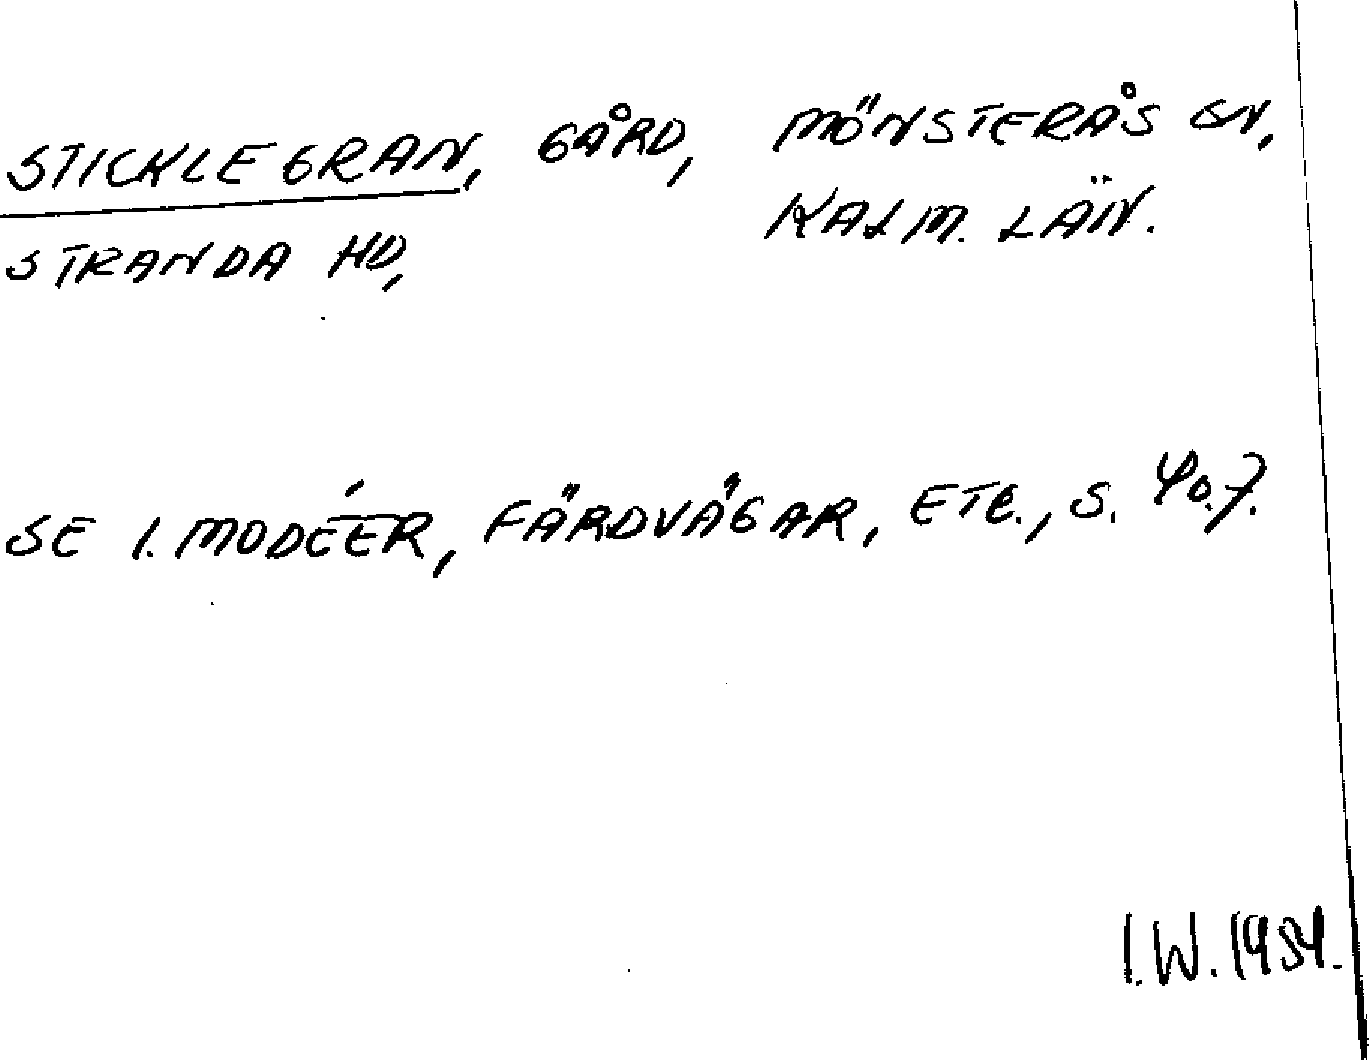 STICKLEGRAN, GÅRD, MÖNSTERÅS SN,
STRANDA HD, KALM. LÄN.
SE I. MODÉER, FÄRDVÄGAR, ETC., S. 40.7.
I.W. 1954.